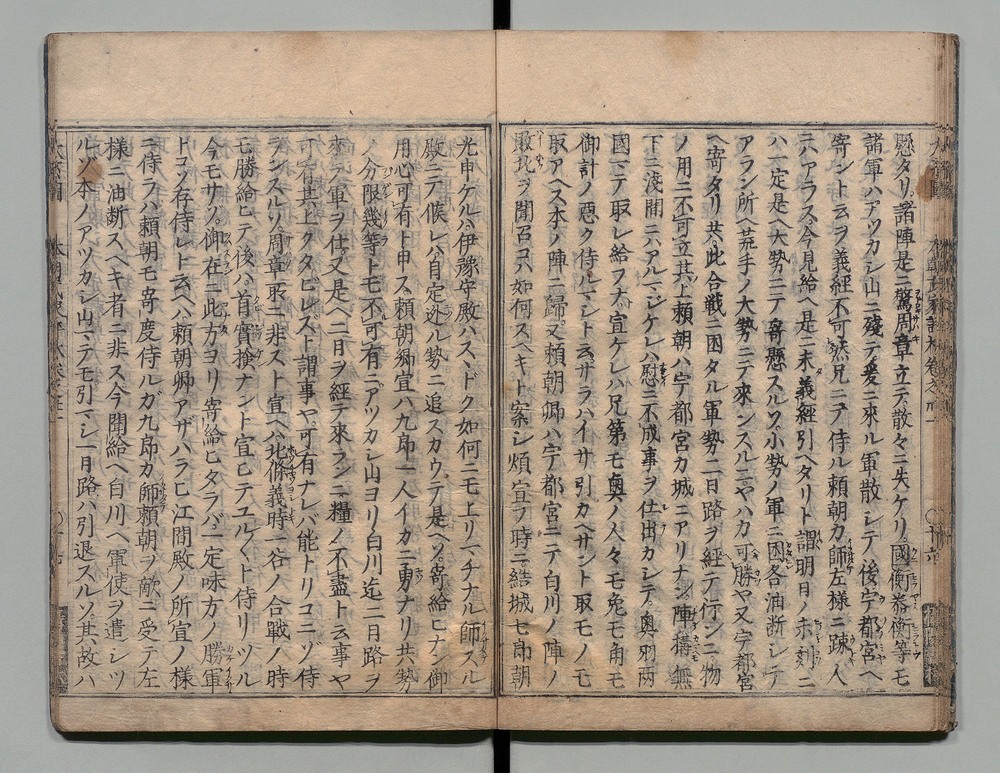 懸タリ諸陣是ニ驚周章立テ散々ニ失ケリ國衡泰衡等モ
諸軍ハアツカシ山ニ殘テ爰ニ來ル軍散シテ後宇都宮ヘ
寄ントエヲ義經不可然兄ニテ侍ル頼朝カ師左様ニ疎人
ニハアラス今見給ヘ是ニ末義經引ヘタリト謂明日ノ未刻ニ
ハ一定是ヘ大勢ニテ寄懸スルソ小勢ノ軍ニ困各油断シテ
アラン所ヘ荒手ノ大勢ニテ來ンスルニヤハカ可勝ヤ又宇都宮
ヘ寄タリ共此合戦ニ困タル軍勢二日路ヲ經テ行ンニ物
ノ用ニ不可立其上頼朝ハ宇都宮カ城ニアリナン陣構無
下ニ淺間ニハアルマシケレハ慰ニ不成事ヲ仕出カシテ奥羽両
國マテ取レ給フナト宣ケレハ兄第モ奥ノ人々モ兔モ角モ
御計ノ悪ク侍ルマシト云サラハイサ引カヘサント取モノモ
取アヘス本ノ陣ニ歸又頼朝卿ハ宇都宮ニテ白川ノ陣ノ
敗北ヲ聞召コハ如何スヘキト案シ煩宣フ時ニ結城七郎朝
光申ケルハ伊豫守殿ハスヽドク如何ニモ上リニチナル師スル
殿ニテ候レハ自定迯ル勢ニ追スカウテ是ヘソ寄給ヒナン御
用心可有ト申ス頼朝卿宣ハ九郎一人イカニ勇ナリ共勢
ノ分限幾等トモ不可有ニアツカシ山ヨリ白川迄二日路ヲ
來テ軍ヲ仕又是ヘ二日ヲ經テ來ランニ糧ノ不盡ト云事ヤ
可有其上クタヒレスト謂事ヤ可有ナレバ能トリコニゾ侍
ランスルソ周章取ニ非スト宣ヘハ北條義時一谷ノ合戦ノ時
モ勝給ヒテ後ハ首實撿ナント宣ヒテユル〱ト侍リツル
今モサソ御在ニ此方ヨリ寄給ヒタラバ一定味方ノ勝軍
トコソ存侍レト云ヘハ頼朝卿アザハラヒ江間殿ノ所宣ノ様
ニ侍ラハ頼朝モ寄度侍ルガ九郎カ師頼朝ヲ敵ニ受テ左
様ニ油断スヘキ者ニ非ス今聞給ヘ白川ヘ軍使ヲ遣シツ
ルゾ本ノアツカシ山マテモ引マシ一日路ハ引退スルソ其故ハ